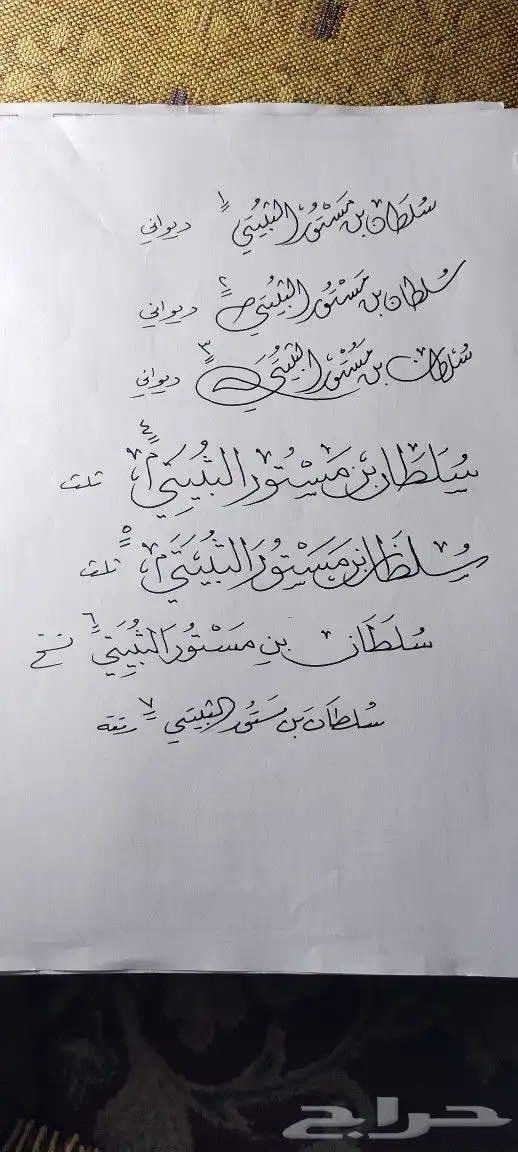 سُلطَان بن مَسْتُور الثبيتي ١ ديواني
سلطان بن مَسْتُور الثبيتي ٢ ديواني
سُلطان بن مَسْتُور الثبيتي ٣ ديواني
سُلَطَان بن مَسْتُور الثُبيَتِي ٤ ثلث
سُلطَان بن مَسَتُورَ الثُبيَتَي ٥ ثلث
سُلَطَان بنِ مَسْتُورَ الثُبِيَتِي ٦ نسخ
سُلطَان بَن مسَتُور الثبيتي ٧ رقعه
حراج